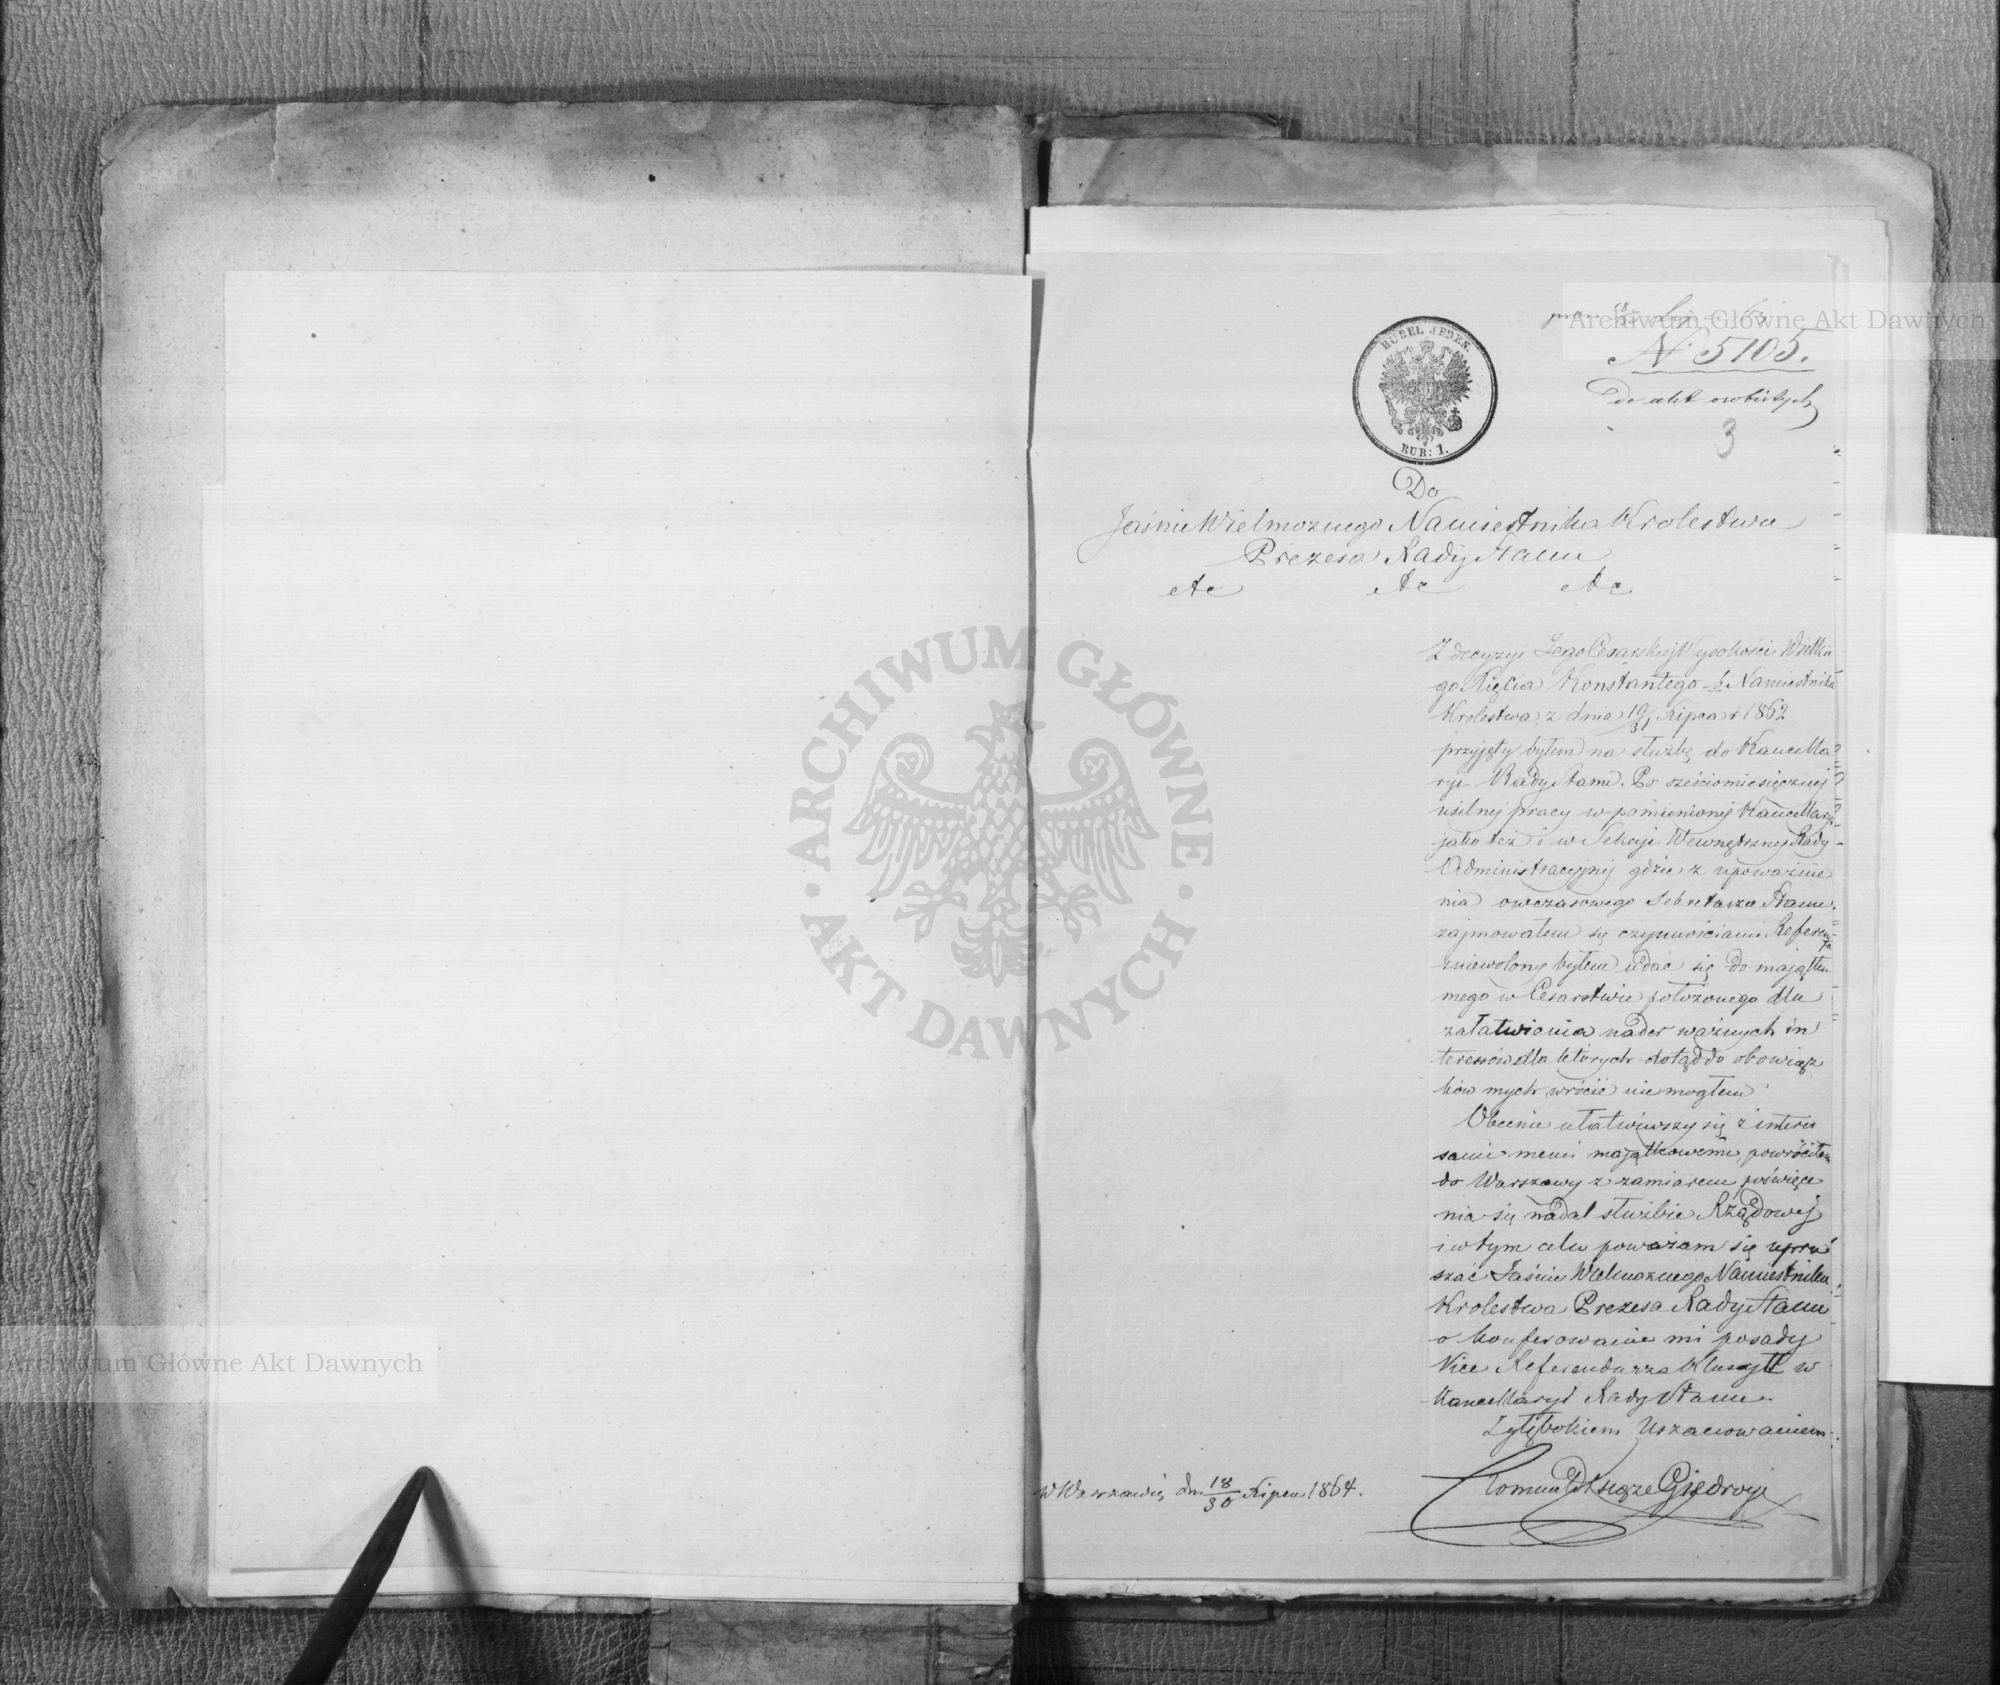 N 5105.
Do akt osobistych
3
RUBEL JEDEN.
RUB: 1.
Do
Jaśnie Wielmoznego Namiestnika Krolestwa
Prezesa Rady Stanu
etc etc etc
Z decyzyi Jego Cesarskiej Wysokości Wielkie
go Xięcia Konstantego b. Namiestnika
Krolestwa z dnia 19/31 Lipca r 1862
przyjęty byłem na służbę do Kancella
ryi Rady Stanu. Po sześciomiesięcznej
usilnej pracy w pomienionej Kancellaryi
jako też i w Sekcyi Wewnętrznej Rady
Administracyjnej gdzie z upoważnie
nia owczasowego Sekretarza Stanu
zajmowałem się czynnościami Referenta
zniewolony byłem udać się do majątku
mego w Cesarstwie położonego dla
załatwienia nader ważnych in
teressów dla których dotąd do obowiąz
ków mych wrócić nie mogłem
Obecnie ułatwiwszy się z interes
sami memi majątkowemi, powróciłem
do Warszawy z zamiarem poświęce
nia się nadal służbie Rządowej
i w tym celu poważam się upra
szać Jaśnie Wielmoznego Namiestnika
Krolestwa Prezesa Rady Stanu
o konferowanie mi posady
Vice Referendarza Klassy II w
Kancellaryi Rady Stanu.
Z głębokiem Uszanowaniem
Romuald Xiąze Giedroyć
w Warszawie dn 18/30 Lipca 1864.
ARCHIWUM GŁÓWNE AKT DAWNYCH
Archiwum Główne Akt Dawnych
Archiwum Główne Akt Dawnych